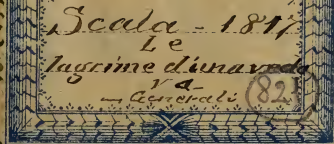 Scala - 1817
Le
lagrime d'una vedo
va
- Generali
821